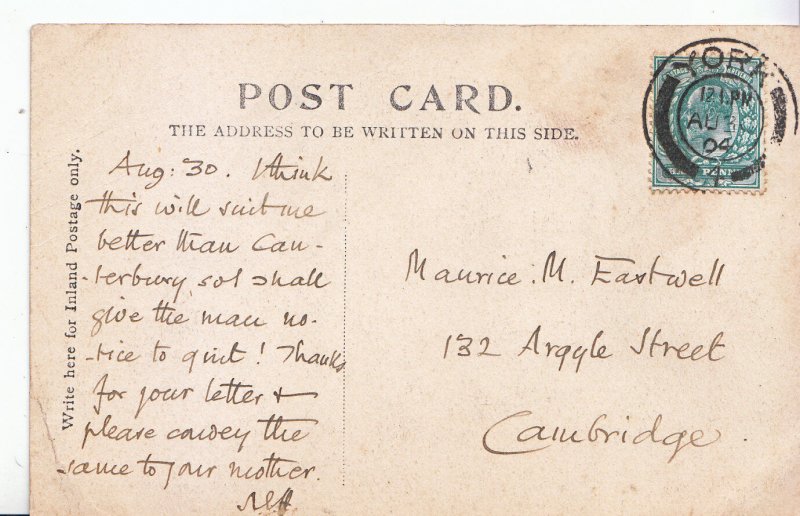 POST CARD.
THE ADDRESS TO BE WRITTEN ON THIS SIDE.
YORK
12 PM
AU
04
PENNY
Write here for Inland Postage only.
Aug: 30. I think
this will suit me
better than Can-
-terbury, so I shall
give the man no-
-tice to quit! Thanks
for your letter &
please convey the
same to your mother.
Maurice. M. Eastwell
132 Argyle Street
Cambridge.